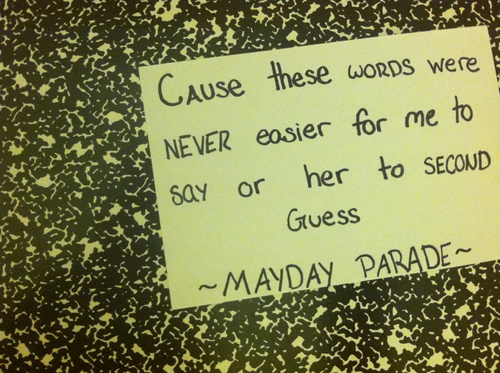 Cause these WORDS were
NEVER easier for me to
say or her to SECOND
Guess
~MAYDAY PARADE~